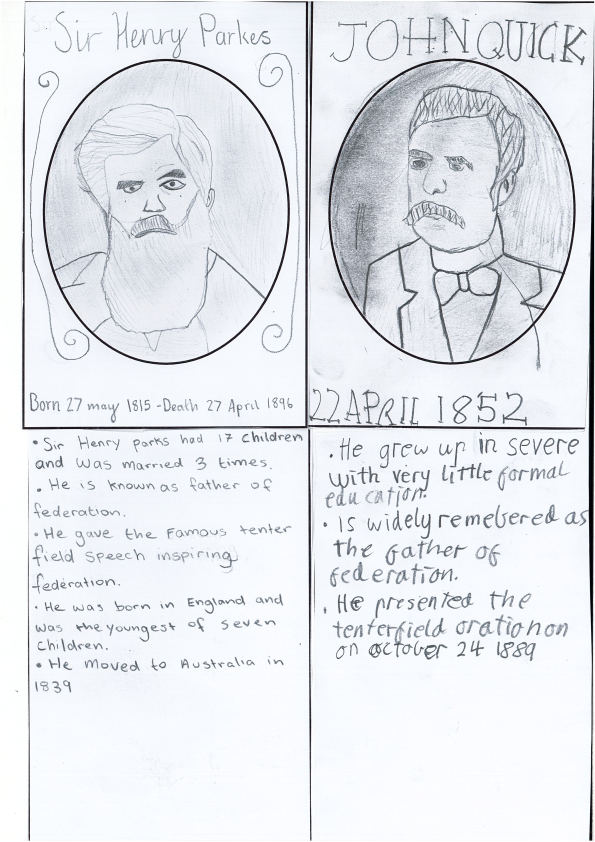 Sir Henry Parkes
Born 27 may 1815 - Death 27 April 1896
• Sir Henry parks had 17 children
and was married 3 times.
• He is known as father of
federation.
• He gave the Famous tenter
field speech inspiring
federation.
• He was born in England and
was the youngest of seven
children.
• He moved to Australia in
1839
JOHN QUICK
22 APRIL 1852
• He grew up in severe
with very little formal
education.
• Is widely remebered as
the father of
federation.
• He presented the
tenterfield orationon
on october 24 1889